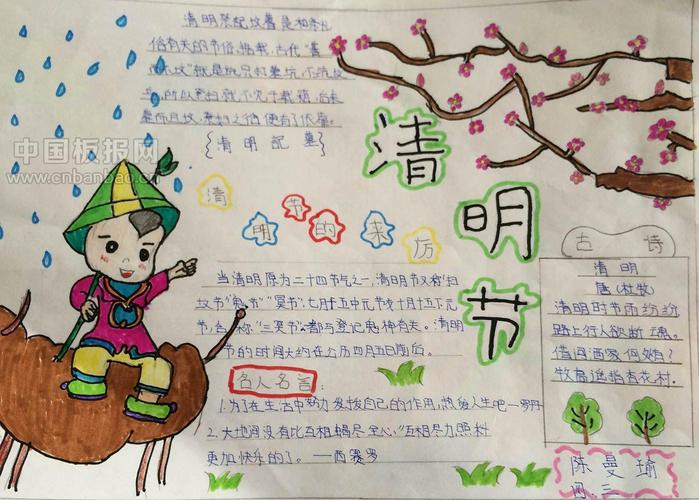 清明祭配坟暮是和祭礼
俗有关的节俗据我,古代"墓
而不坟"就是说只打墓坑,不
所以祭扫就不见于载籍,后来
墓而且坟,祭扫之俗便有了依

{清明祀墓}
中国板报网
www.cnbanbao.cn
清明节的来历
清明节
当清明原为二十四节气之一,清明节又称"扫
坟节"鬼节""冥节",七月十五中元节或十月十五下元
节,合称"三冥节"都与登记鬼神有关。清明
节的时间大约在公历四月五日前后。
名人名言:
1.为了在生活中努力发挥自己的作用,热爱人生吧一罗丹
2.大地间没有比互相竭尽全心,"互相尽力照料
更加快乐的了。——西赛罗
古诗
清明
唐(杜牧)
清明时节雨纷纷
路上行人欲断魂。
借问酒家何处有?
牧童遥指杏花村.
陈曼瑜
四三